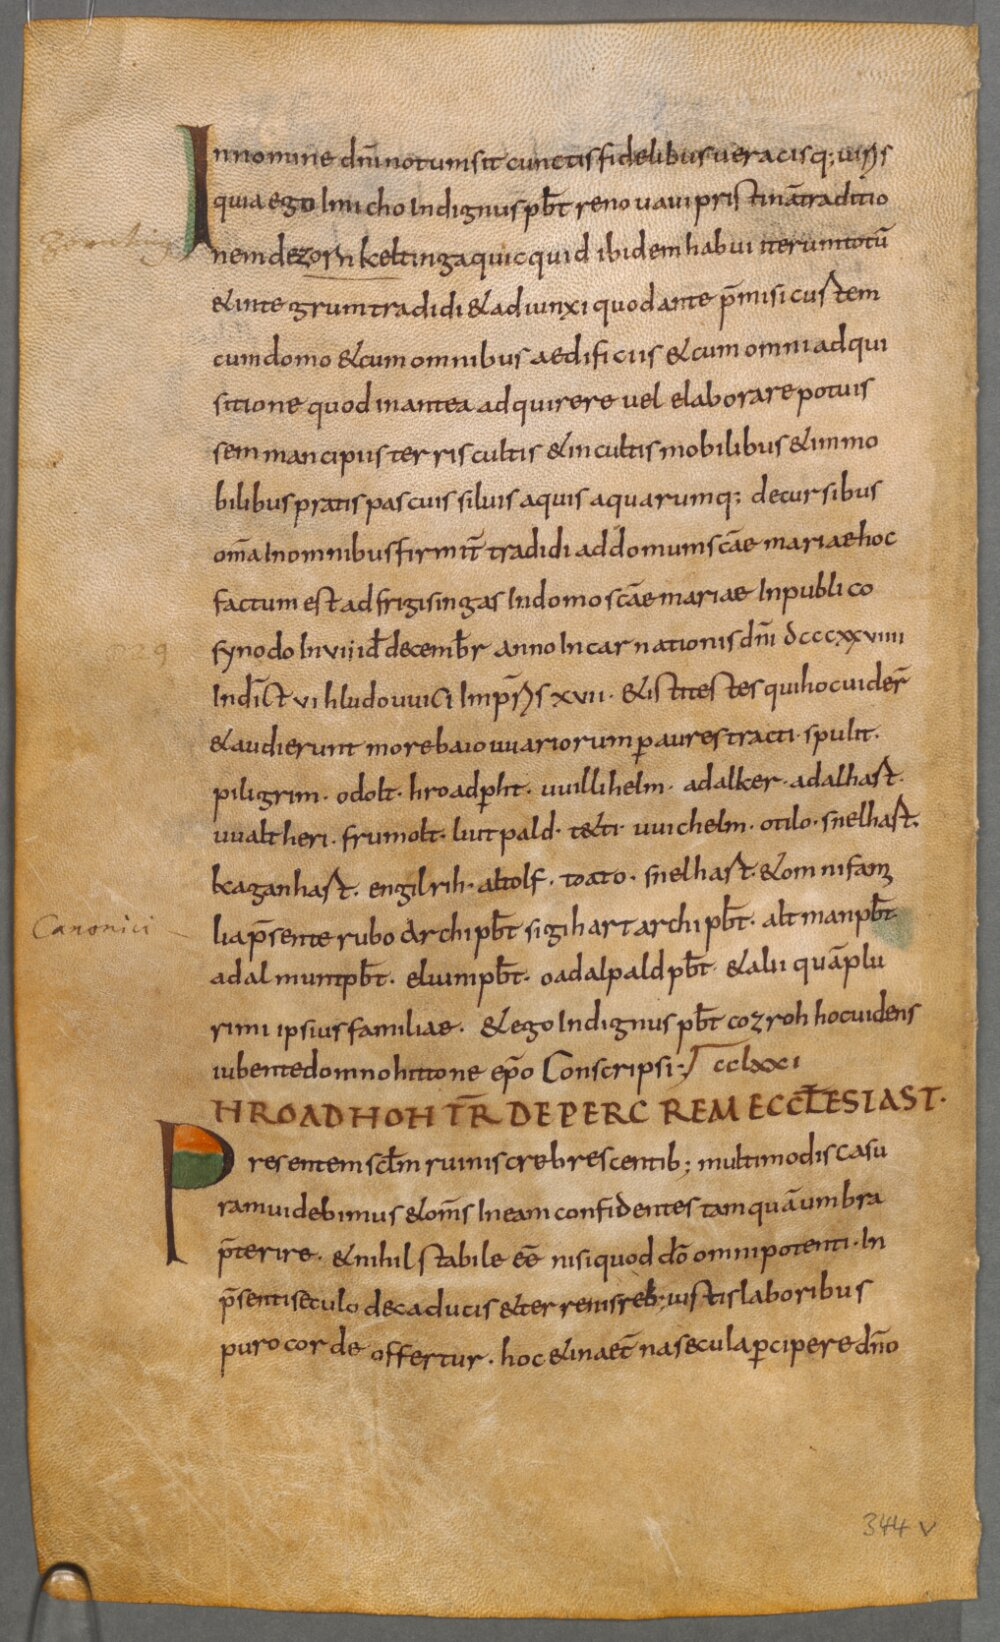 In nomine dñi notum sit cunctis fidelibus veracisq; viris
quia ego Imicho Indignus pb̄t renovavi pristinā traditio
gornking
nem de zornkeltinga quicquid ibidem habui iterum totū
& integrum tradidi & adiunxi quod ante p̄misi custem
cum domo & cum omnibus aedificiis & cum omni adqui
sitione quod in antea adquirere vel elaborare potuis
sem mancipiis terris cultis & incultis mobilibus & inmo
bilibus pratis pascuis silvis aquis aquarumq; decursibus
om̄a In omnibus firmit̄ tradidi ad domum scāe mariae hoc
factum est ad frigisingas In domo scāe mariae In publico
synodo In vii id̄ decemb̄r anno Incarnationis dn̄i dcccxxviiii
829
Indīct vi hludouuici Imp̄ris xvii · & isti testes qui hoc vider̄
& audierunt more baiouuariorum ꝑ aures tracti · spulit ·
piligrim · odolt · hroadꝑht · uuillihelm · adalker · adalhast ·
uualtheri · frumolt · liutpald · tetti · uuichelm · otilo · snelhast ·
kaganhast · engilrih · altolf · toato · snelhast · & omni fam
Canonici
lia p̄sente rubo archipb̄t sigihart archipb̄t · altman pb̄t
adalmunt pb̄t · eluuin pb̄t · oadalpald pb̄t · & alii quā plu
rimi ipsius familiae · & ego Indignus pb̄t cozroh hoc videns
iubente domno hittone ep̄o Conscripsi :/ cclxxi
HROADHOH TR̄ DE PERC REM ECCLESIAST ·
Presentem sc̄lm ruinis crebrescentib; multimodis casu
ram videbimus & om̄s In eam confidentes tamquā umbra
p̄terire · & nihil stabile eē nisi quod dō omnipotenti · In
p̄senti seculo de caducis & terrenis reb; iustis laboribus
puro corde offertur · hoc & in aet̄na secula ꝑcipere dn̄o
344 v